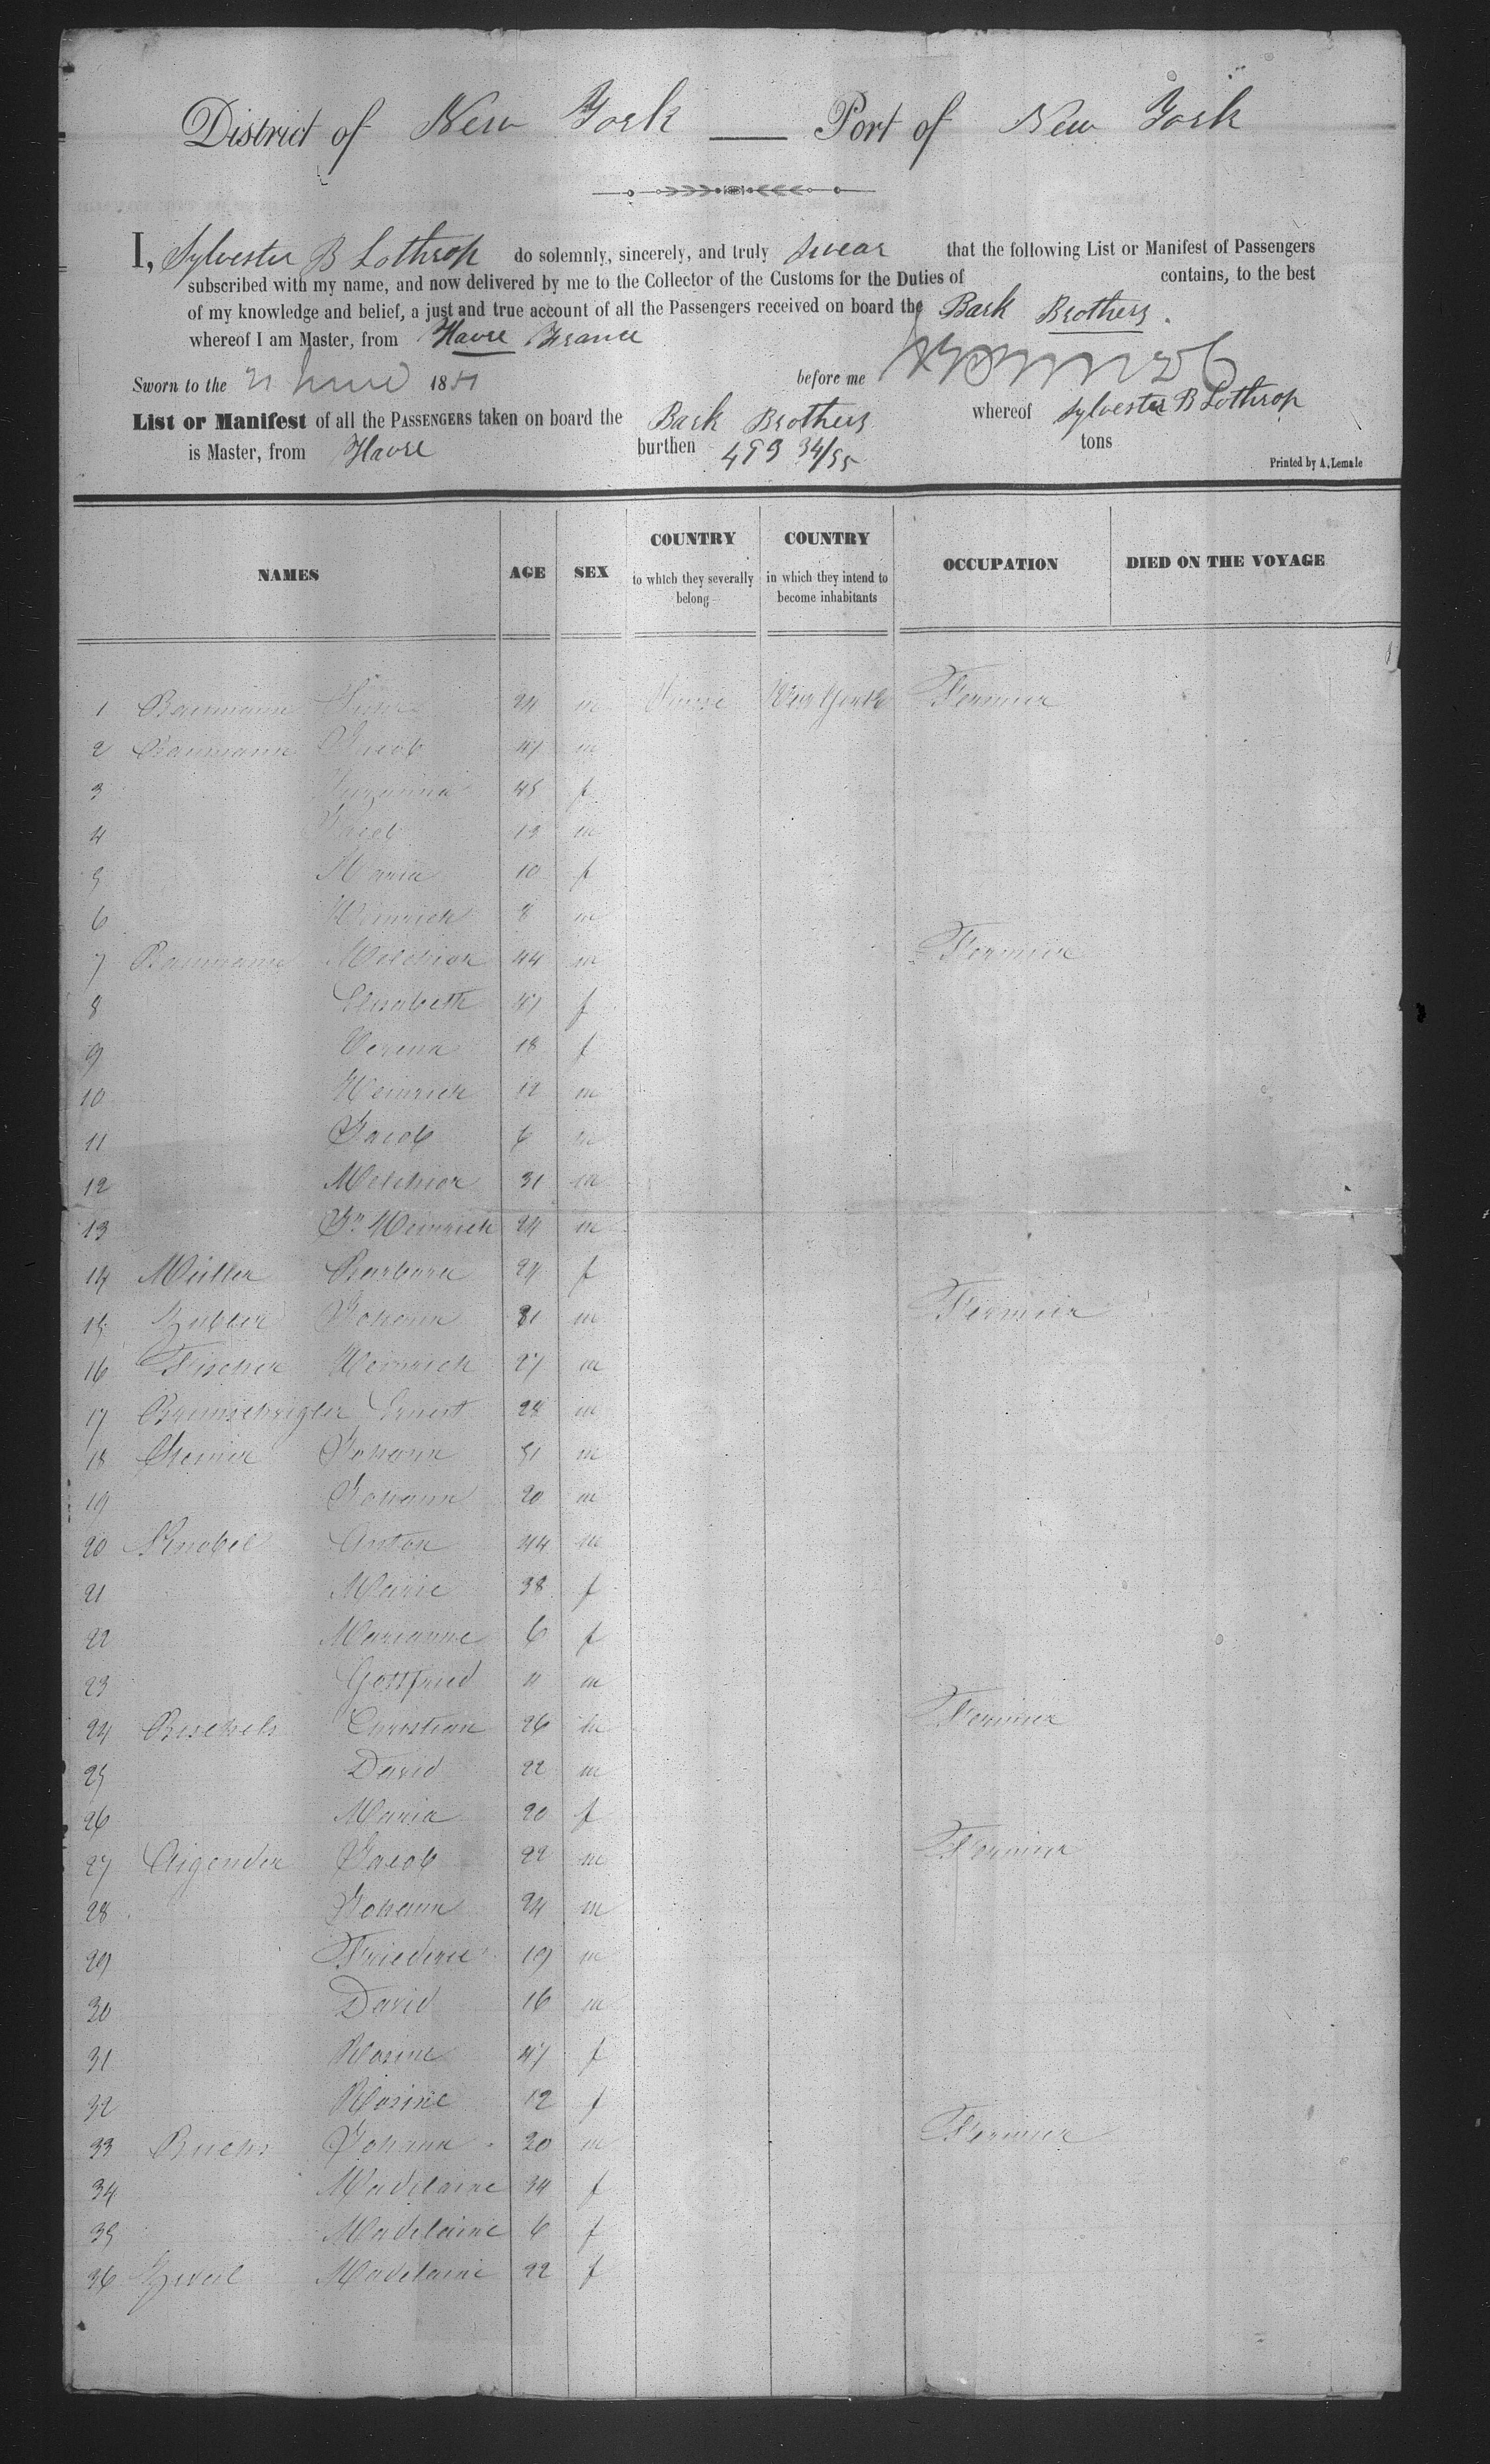 District of New York — Port of New York
I, Sylvester B Lothrop do solemnly, sincerely, and truly swear that the following List or Manifest of Passengers
subscribed with my name, and now delivered by me to the Collector of the Customs for the Duties of contains, to the best
of my knowledge and belief, a just and true account of all the Passengers received on board the Bark Brothers.
whereof I am Master, from Havre France
Sworn to the 21 June 1851 before me
List or Manifest of all the PASSENGERS taken on board the Bark Brothers whereof Sylvester B Lothrop
is Master, from Havre burthen 34/95 tons
Printed by A. Lemale
NAMES AGE SEX COUNTRY to which they severally belong COUNTRY in which they intend to become inhabitants OCCUPATION DIED ON THE VOYAGE
1 Baumann 24 m New York Fermier
2 Baumann Jacob 47 m
3 45 f
4 Jacob 13 m
5 Maria 10 f
6 Heinrich 8 m
7 Baumann Melchior 44 m Fermier
8 Elisabeth 47 f
9 Verena 18 f
10 Heinrich 12 m
11 Jacob 6 m
12 Melchior 31 m
13 Jn Heinrich 24 m
14 Müller Barbara 24 f
15 Zubler Johann 31 m Fermier
16 Fischer Heinrich 27 m
17 Ernest 28 m
18 Johann 51 m
19 Johann 20 m
20 Knobel Anton 44 m
21 Marie 38 f
22 Marianne 6 f
23 Gottfried 11 m
24 Christian 26 m Fermier
25 David 22 m
26 Maria 20 f
27 Jacob 22 m Fermier
28 Johann 24 m
29 19 m
30 David 16 m
31 Rosine 47 f
32 Rosine 12 f
33 Buchs Johann 30 m Fermier
34 Madelaine 34 f
35 Madelaine 6 f
36 Madelaine 22 f